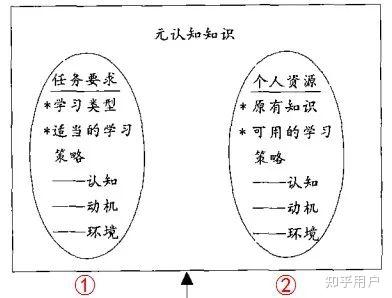 元认知知识
任务要求
*学习类型
*适当的学习
策略
——认知
——动机
——环境
个人资源
*原有知识
*可用的学习
策略
——认知
——动机
——环境
①
②
知乎用户